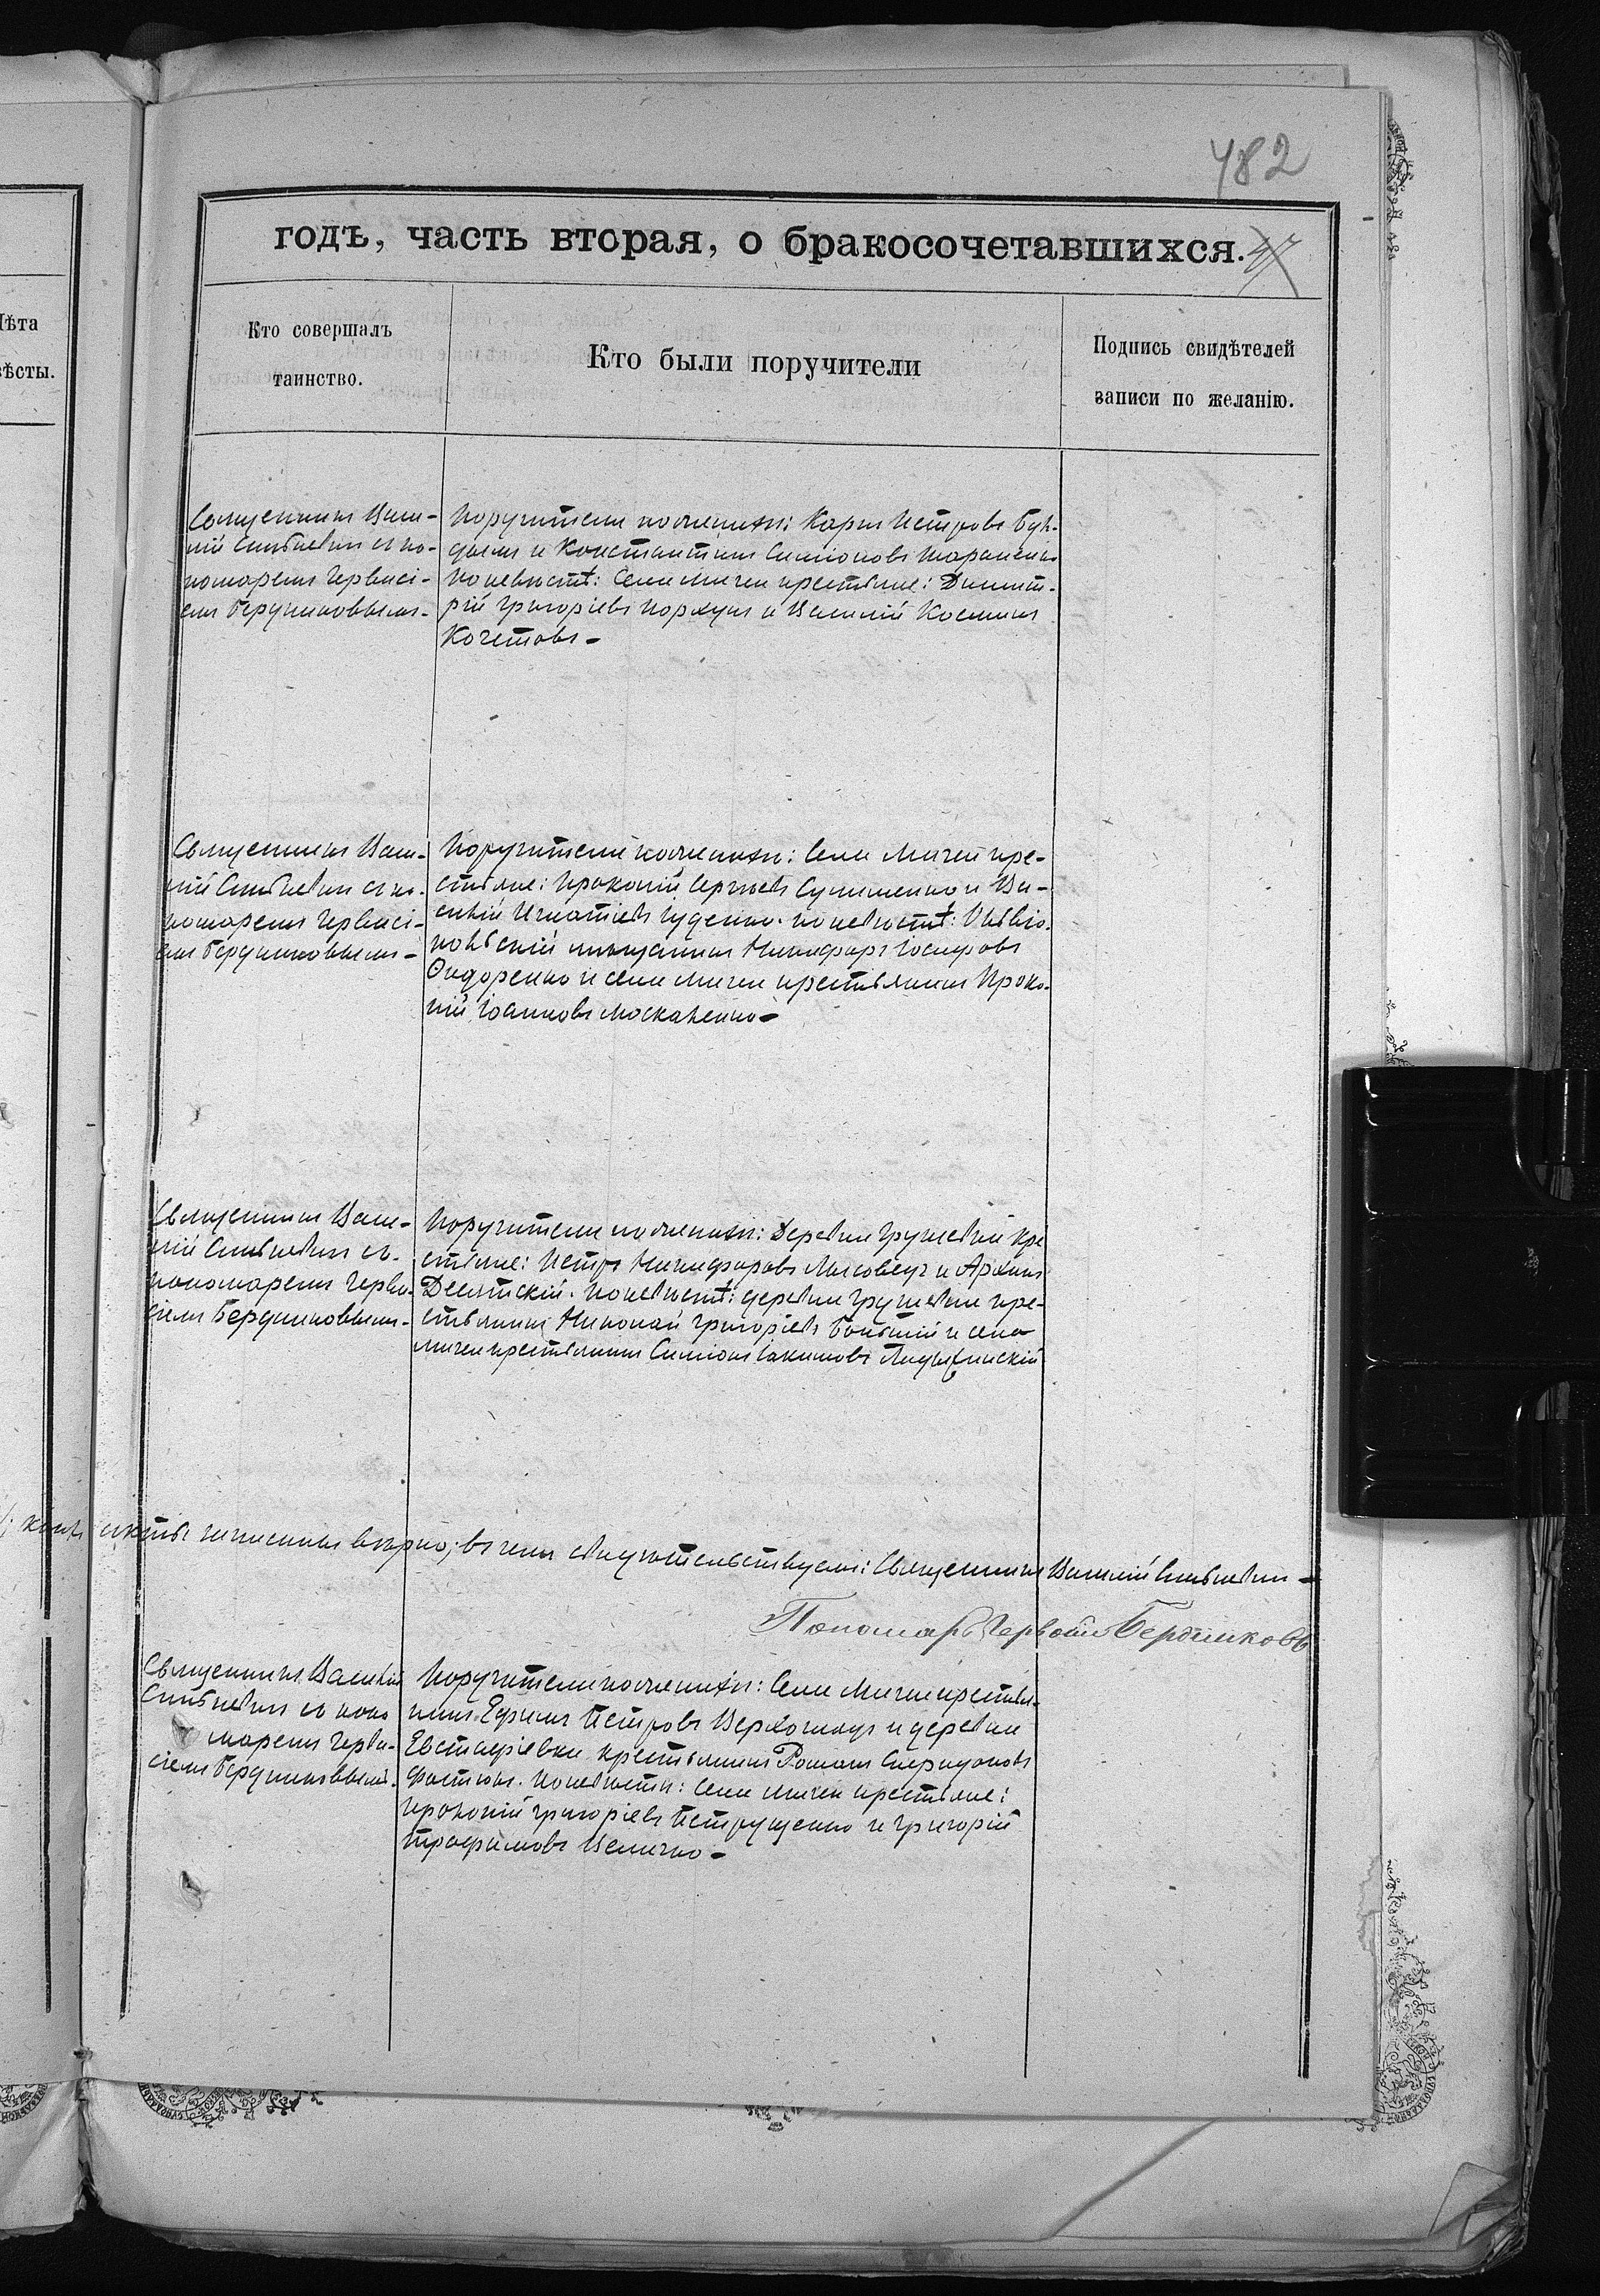 482
годъ, часть вторая, о бракосочетавшихся.
Лѣта
вѣсты.
Кто совершалъ
таинство.
Кто были поручители
Подпись свидѣтелей
записи по желанію.
Священникъ Васи-
лій Синьневичъ съ по-
номаремъ Гервасі-
емъ Бердниковымъ-
Поручители по женихѣ: Карпъ Петровъ
и Константинъ Симіоновъ Тараненко
По невѣстѣ: Села Мигеи крестьяне: Димит-
рій Григоріевъ Коржуш и Василій Косминъ
Кочетовъ-
Священникъ Васи-
лій Синьневичъ съ по-
номаремъ Гервасі-
емъ Бердниковымъ-
Поручители по женихѣ: Села Мигеи кре-
стьяне: Прокопій Сергіевъ Сулименко и Ва-
силій Игнатіевъ Гуденко. По невѣстѣ: Ольвіо-
польскій мѣщанинъ Никифоръ Іосифовъ
Ѳидоренко и села Мигеи крестьянинъ Проко-
пій Іоанновъ Москаленко-
Священникъ Васи-
лій Синьневичъ съ
пономаремъ Герва-
сіемъ Бердниковымъ-
Поручители по женихѣ: Деревни Грушевки кре-
стьяне: Петръ Никифоровъ Лисовецъ и Архипъ
Десятскій. По невѣстѣ: деревни Грушевки кре-
стьянинъ Николай Григоріевъ и села
Мигеи крестьянинъ Симіонъ Іакимовъ Ладыжинскій
акты записаны вѣрно; въ чемъ свидѣтельствуемъ: Священникъ Василій Синьневичъ-
Пономарь Гервасій Бердниковъ
Священникъ Василій
Синьневичъ съ поно
маремъ Герва-
сіемъ Бердниковымъ.
Поручители по женихѣ: Села Мигеи крестья-
нинъ Ефимъ Петровъ Верхогляд и деревни
Евстафіевки крестьянинъ Романъ Спиридоновъ
Фостюкъ. По невѣстѣ: Села Мигеи крестьяне:
Прокопій Григоріевъ Петрущенко и Григорій
Трофимовъ Величко-